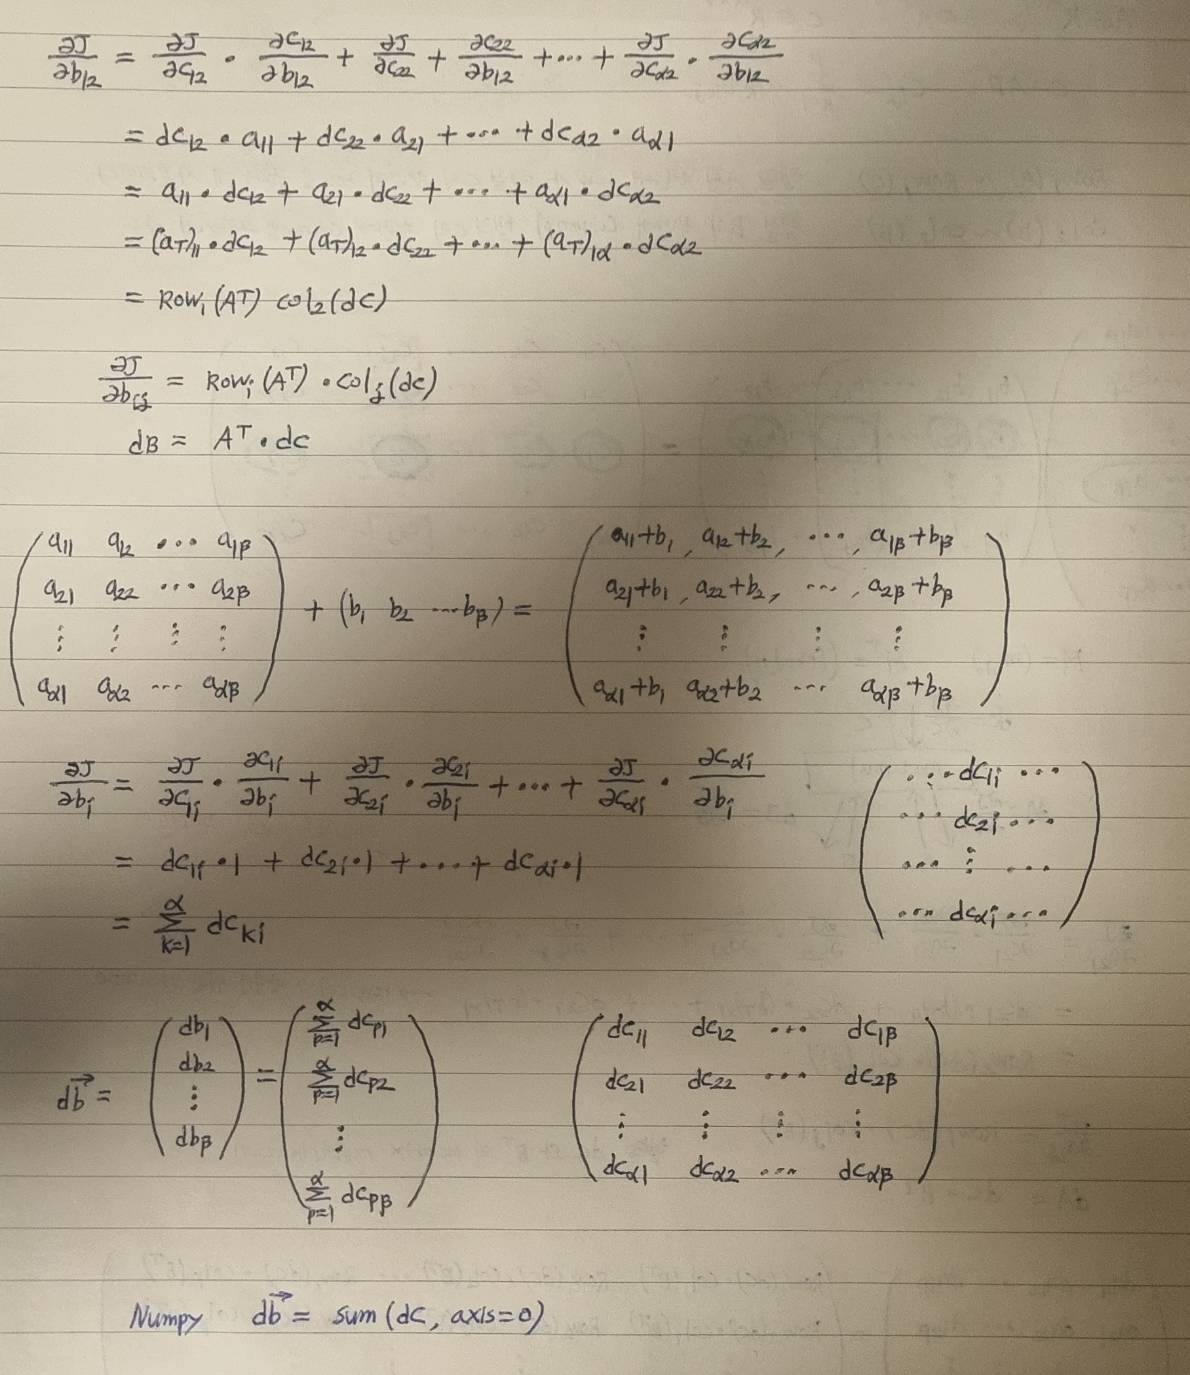 ∂J/∂b₁₂ = ∂J/∂c₁₂ · ∂c₁₂/∂b₁₂ + ∂J/∂c₂₂ + ∂c₂₂/∂b₁₂ + ··· + ∂J/∂c_α2 · ∂c_α2/∂b₁₂
= dc₁₂ · a₁₁ + dc₂₂ · a₂₁ + ··· + dc_α2 · a_α1
= a₁₁ · dc₁₂ + a₂₁ · dc₂₂ + ··· + a_α1 · dc_α2
= (a_T)₁₁ · dc₁₂ + (a_T)₁₂ · dc₂₂ + ··· + (a_T)_1α · dc_α2
= Row₁(Aᵀ) col₂(dc)
∂J/∂b_ij = Row_i(Aᵀ) · col_j(dc)
dB = Aᵀ · dc
( a₁₁ a₁₂ ··· a_1β ; a₂₁ a₂₂ ··· a_2β ; ⋮ ⋮ ⋮ ⋮ ; a_α1 a_α2 ··· a_αβ ) + (b₁ b₂ ··· b_β) = ( a₁₁+b₁, a₁₂+b₂, ···, a_1β+b_β ; a₂₁+b₁, a₂₂+b₂, ···, a_2β+b_β ; ⋮ ⋮ ⋮ ⋮ ; a_α1+b₁ a_α2+b₂ ··· a_αβ+b_β )
∂J/∂b_i = ∂J/∂c_1i · ∂c_1i/∂b_i + ∂J/∂c_2i · ∂c_2i/∂b_i + ··· + ∂J/∂c_αi · ∂c_αi/∂b_i
= dc_1i · 1 + dc_2i · 1 + ··· + dc_αi · 1
= Σ_{k=1}^{α} dc_ki
( ··· dc_1i ··· ; ··· dc_2i ··· ; ··· ⋮ ··· ; ··· dc_αi ··· )
db⃗ = ( db₁ ; db₂ ; ⋮ ; db_β ) = ( Σ_{p=1}^{α} dc_p1 ; Σ_{p=1}^{α} dc_p2 ; ⋮ ; Σ_{p=1}^{α} dc_pβ )
( dc₁₁ dc₁₂ ··· dc_1β ; dc₂₁ dc₂₂ ··· dc_2β ; ⋮ ⋮ ⋮ ⋮ ; dc_α1 dc_α2 ··· dc_αβ )
Numpy db⃗ = sum(dc, axis=0)